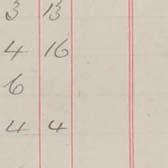 3 13
4 16
6
4 4